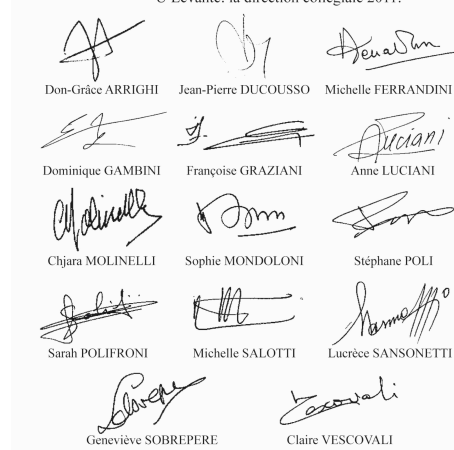 U Levante: la direction collégiale 2011:
Don-Grâce ARRIGHI Jean-Pierre DUCOUSSO Michelle FERRANDINI
Dominique GAMBINI Françoise GRAZIANI Anne LUCIANI
Luciani
Chjara MOLINELLI Sophie MONDOLONI Stéphane POLI
CMolinelli
Sarah POLIFRONI Michelle SALOTTI Lucrèce SANSONETTI
Geneviève SOBREPERE Claire VESCOVALI
Vescovali